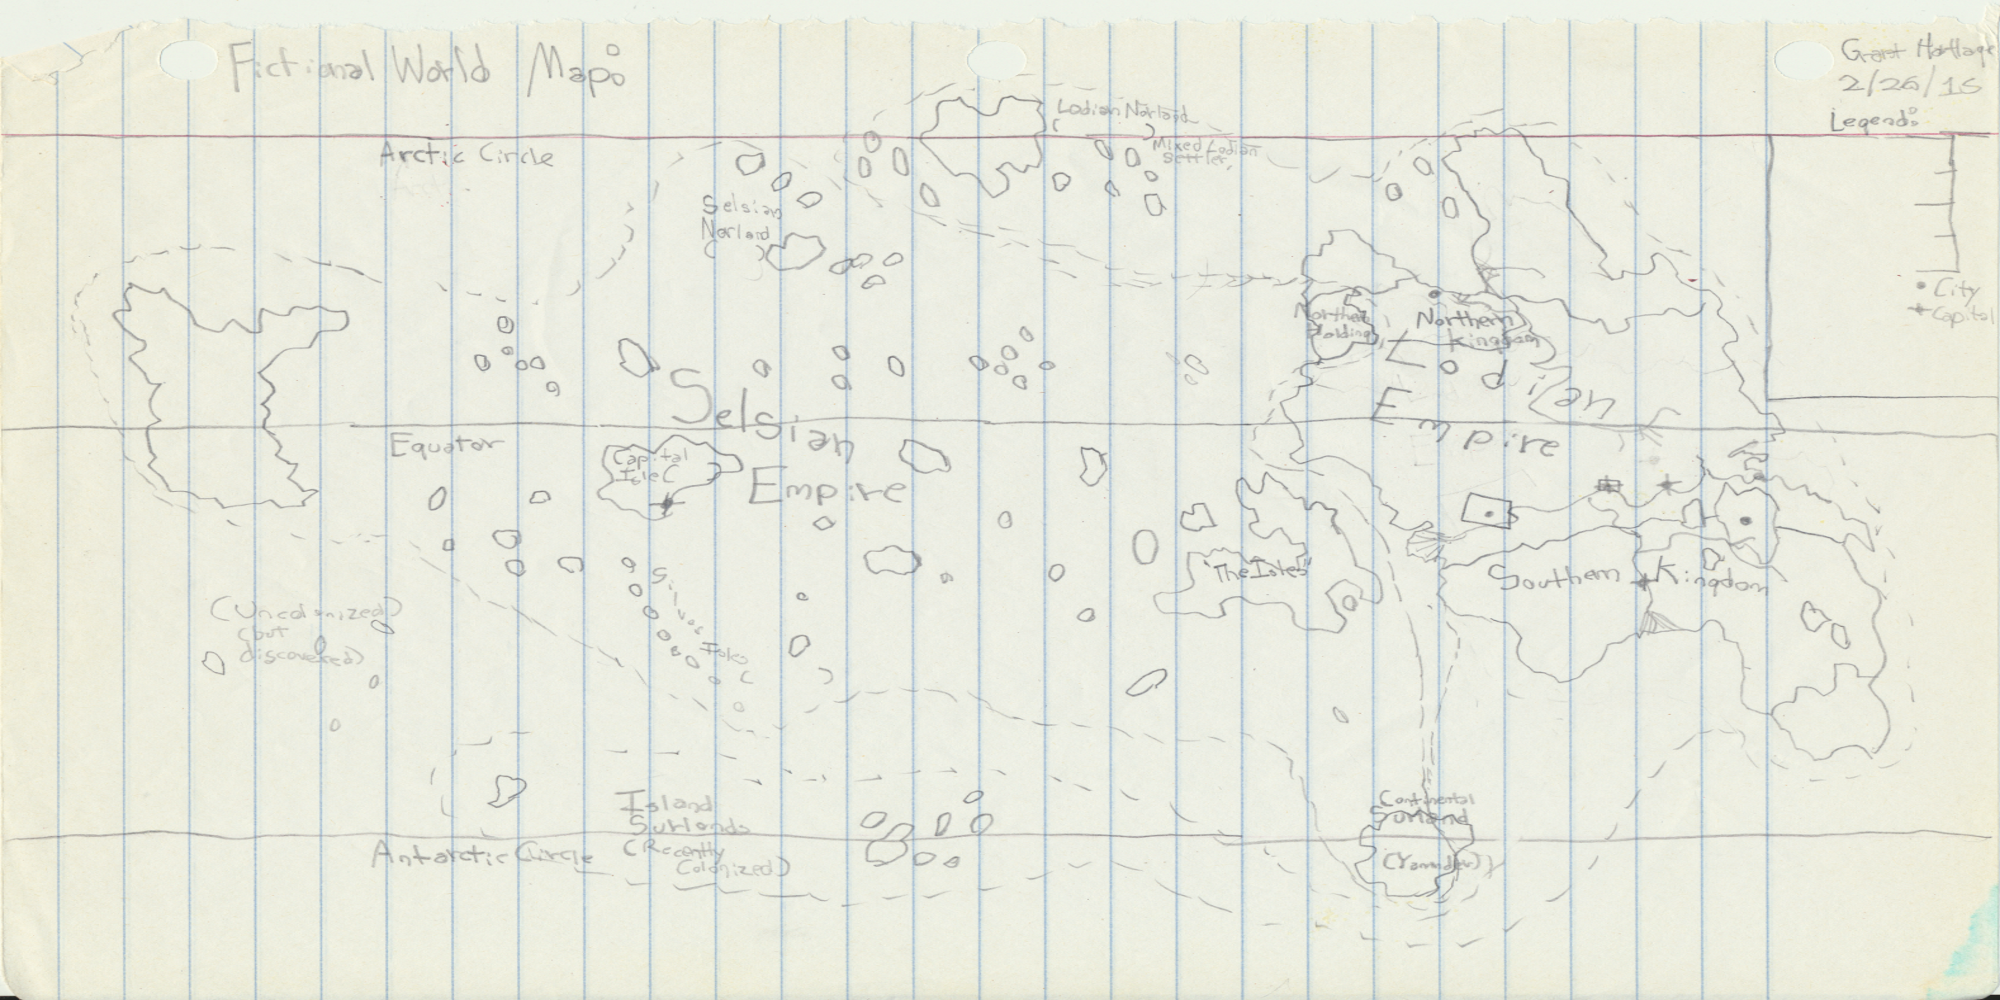 Fictional World Map:
Grant
2/26/15
Legend:
City
Capital
Lodian Norland
(   )
Mixed Lodian
Settler.
Arctic Circle
Selsian
Norland
(   )
Northern
Holdings
Northern
Kingdom
Lodian
Empire
Selsian
Empire
Equator
Capital
Isle
"The Isles"
Southern Kingdom
Isles
(Uncolonized)
(but
discovered)
Island
Surlands
(Recently
Colonized)
Continental
Surland
Antarctic Circle